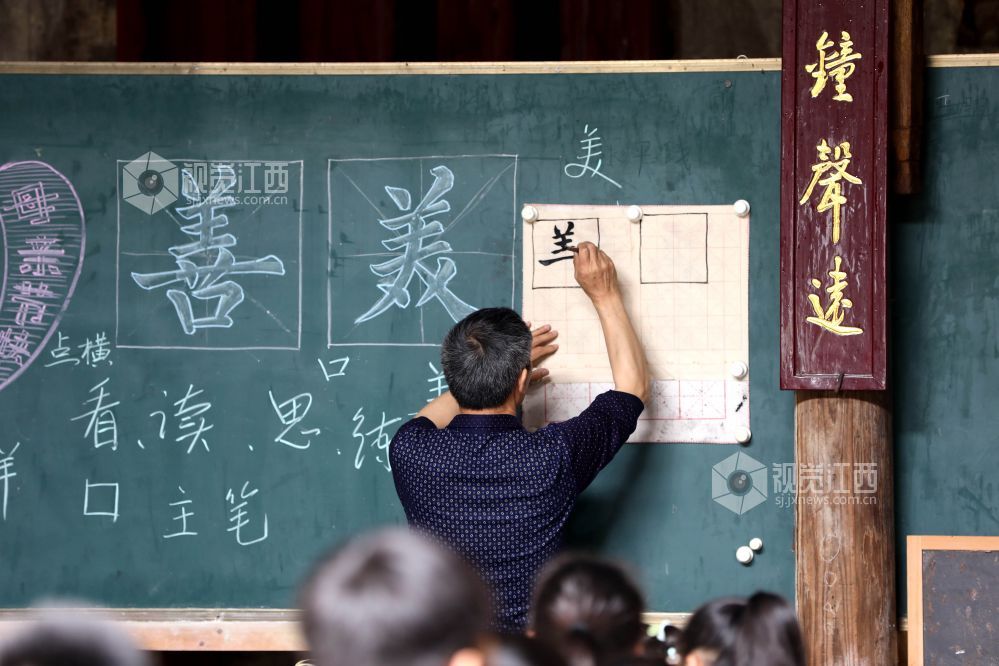 善 美
美
鐘聲遠
点横
看、读、思、练
口
口 主笔
视觉江西
sj.jxnews.com.cn
视觉江西
sj.jxnews.com.cn